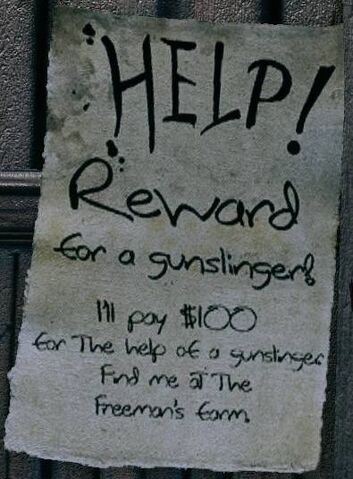 HELP!
Reward
for a gunslinger!
I'll pay $100
for The help of a gunslinger.
Find me at The
Freeman's farm.